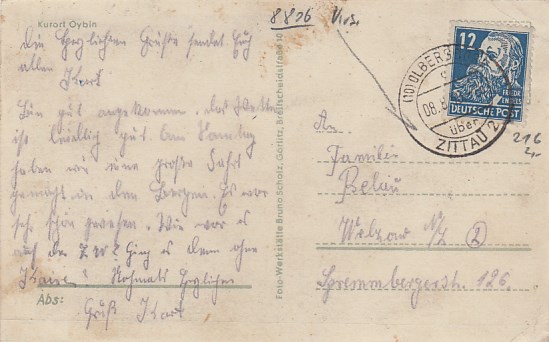 Kurort Oybin
Die herzlichsten Grüße sendet Euch
allen Kurt
Bin gut angekommen. Das Wetter
ist gut. Am Sonntag
haben wir eine große Fahrt
gemacht in den Bergen. Es war
sehr schön gewesen. Wie war es
auf der Ging es denn ohne
Nochmals herzlichen
Abs:
Gruß Kurt
Foto-Werkstätte Bruno Scholz, Görlitz, Breitscheidstraße 10
8806
12
DEUTSCHE POST
(10) OLBERS
08.8
über
ZITTAU 2
216
An
Familie
Belau
Welzow N/L 2
Spremmbergerstr. 126.